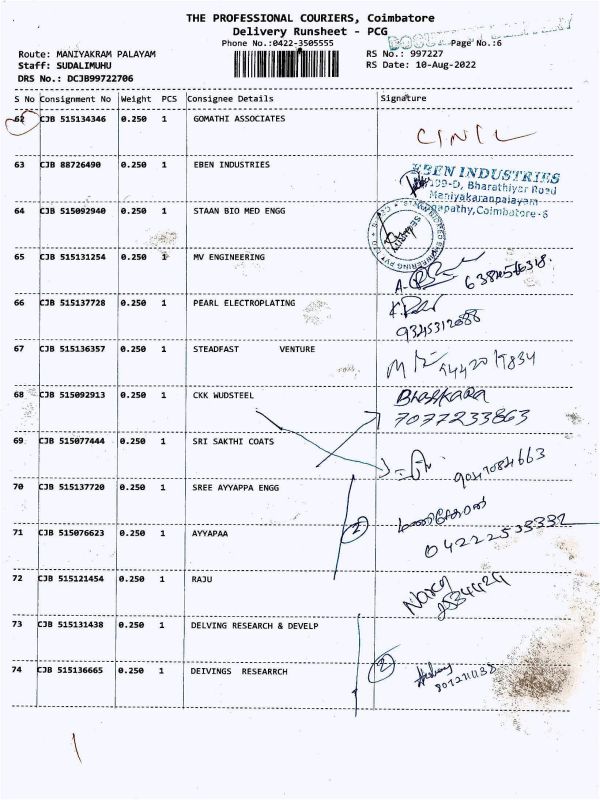 THE PROFESSIONAL COURIERS, Coimbatore
Delivery Runsheet - PCG
Phone No.:0422-3505555
Page No.:6
Route: MANIYAKRAM PALAYAM
RS No.: 997227
Staff: SUDALIMUHU
RS Date: 10-Aug-2022
DRS No.: DCJB99722706
S No Consignment No Weight PCS Consignee Details Signature
62 CJB 515134346 0.250 1 GOMATHI ASSOCIATES
63 CJB 88726490 0.250 1 EBEN INDUSTRIES
EBEN INDUSTRIES
109-D, Bharathiyar Road
Maniyakaranpalayam
Coimbatore - 6
64 CJB 515092940 0.250 1 STAAN BIO MED ENGG
65 CJB 515131254 0.250 1 MV ENGINEERING
66 CJB 515137728 0.250 1 PEARL ELECTROPLATING
9345312688
67 CJB 515136357 0.250 1 STEADFAST VENTURE
68 CJB 515092913 0.250 1 CKK WUDSTEEL Bhaskara
7077233863
69 CJB 515077444 0.250 1 SRI SAKTHI COATS
70 CJB 515137720 0.250 1 SREE AYYAPPA ENGG
71 CJB 515076623 0.250 1 AYYAPAA 2
72 CJB 515121454 0.250 1 RAJU
73 CJB 515131438 0.250 1 DELVING RESEARCH & DEVELP
74 CJB 515136665 0.250 1 DEIVINGS RESEARRCH 2